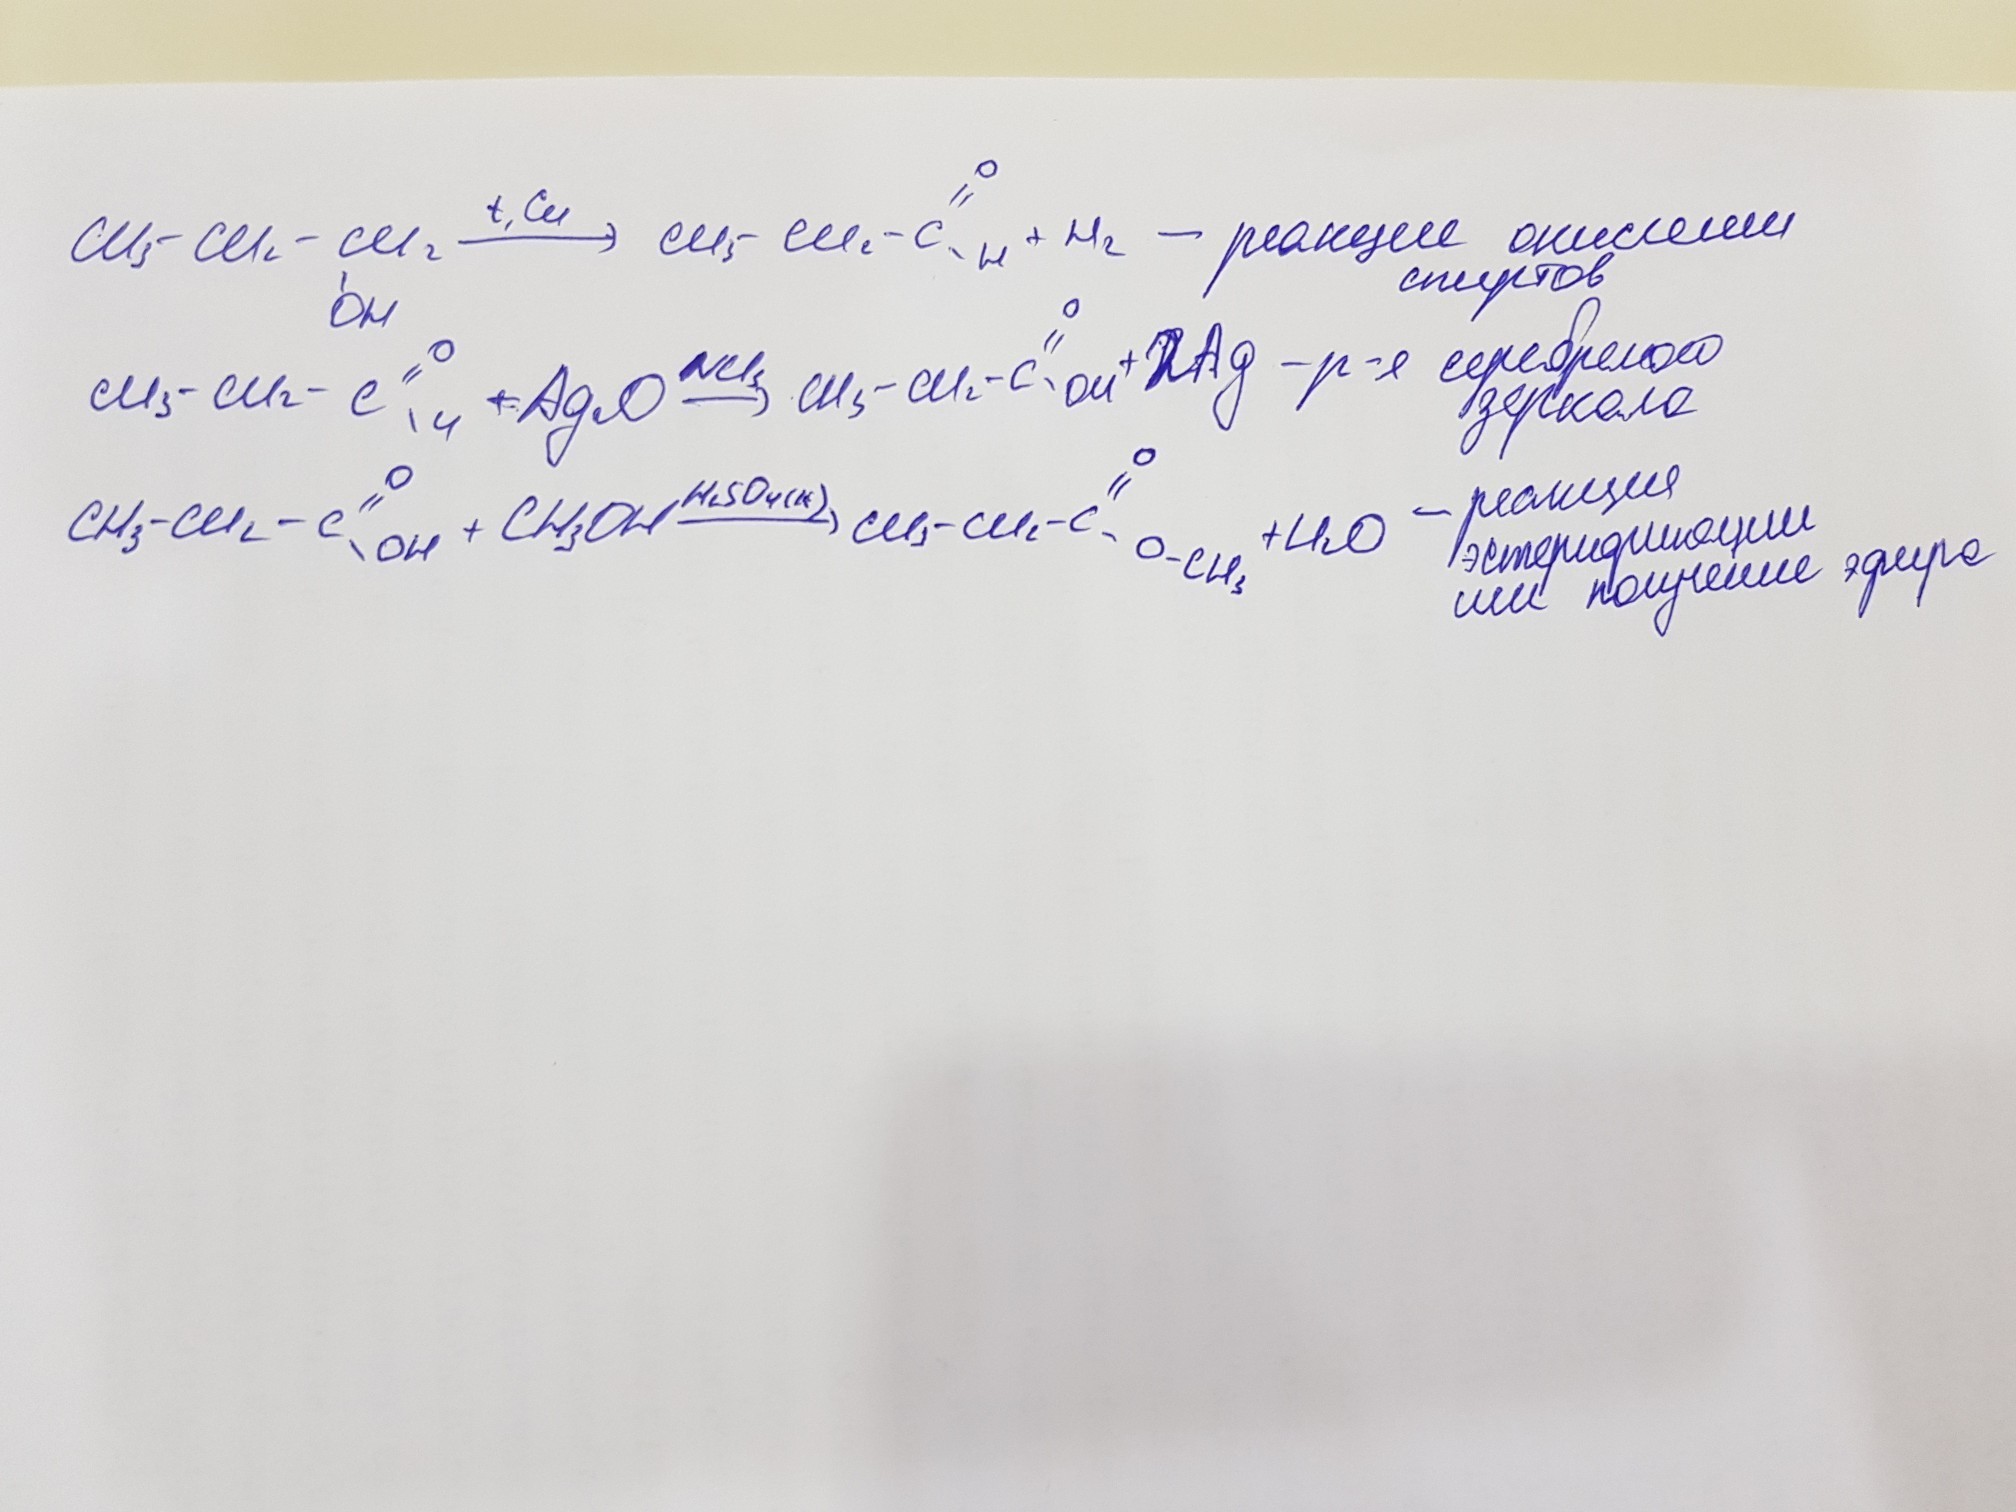 CH3-CH2-CH2 t, Cu → CH3-CH2-C =O -H + H2 – реакции окислении
OH спиртов
CH3-CH2-C =O -H + Ag2O NH3 → CH3-CH2-C =O OH + 2Ag – р-я серебреного
зеркала
CH3-CH2-C =O OH + CH3OH H2SO4(к) → CH3-CH2-C =O O-CH3 + H2O – реакция
эстерификации
или получение эфира